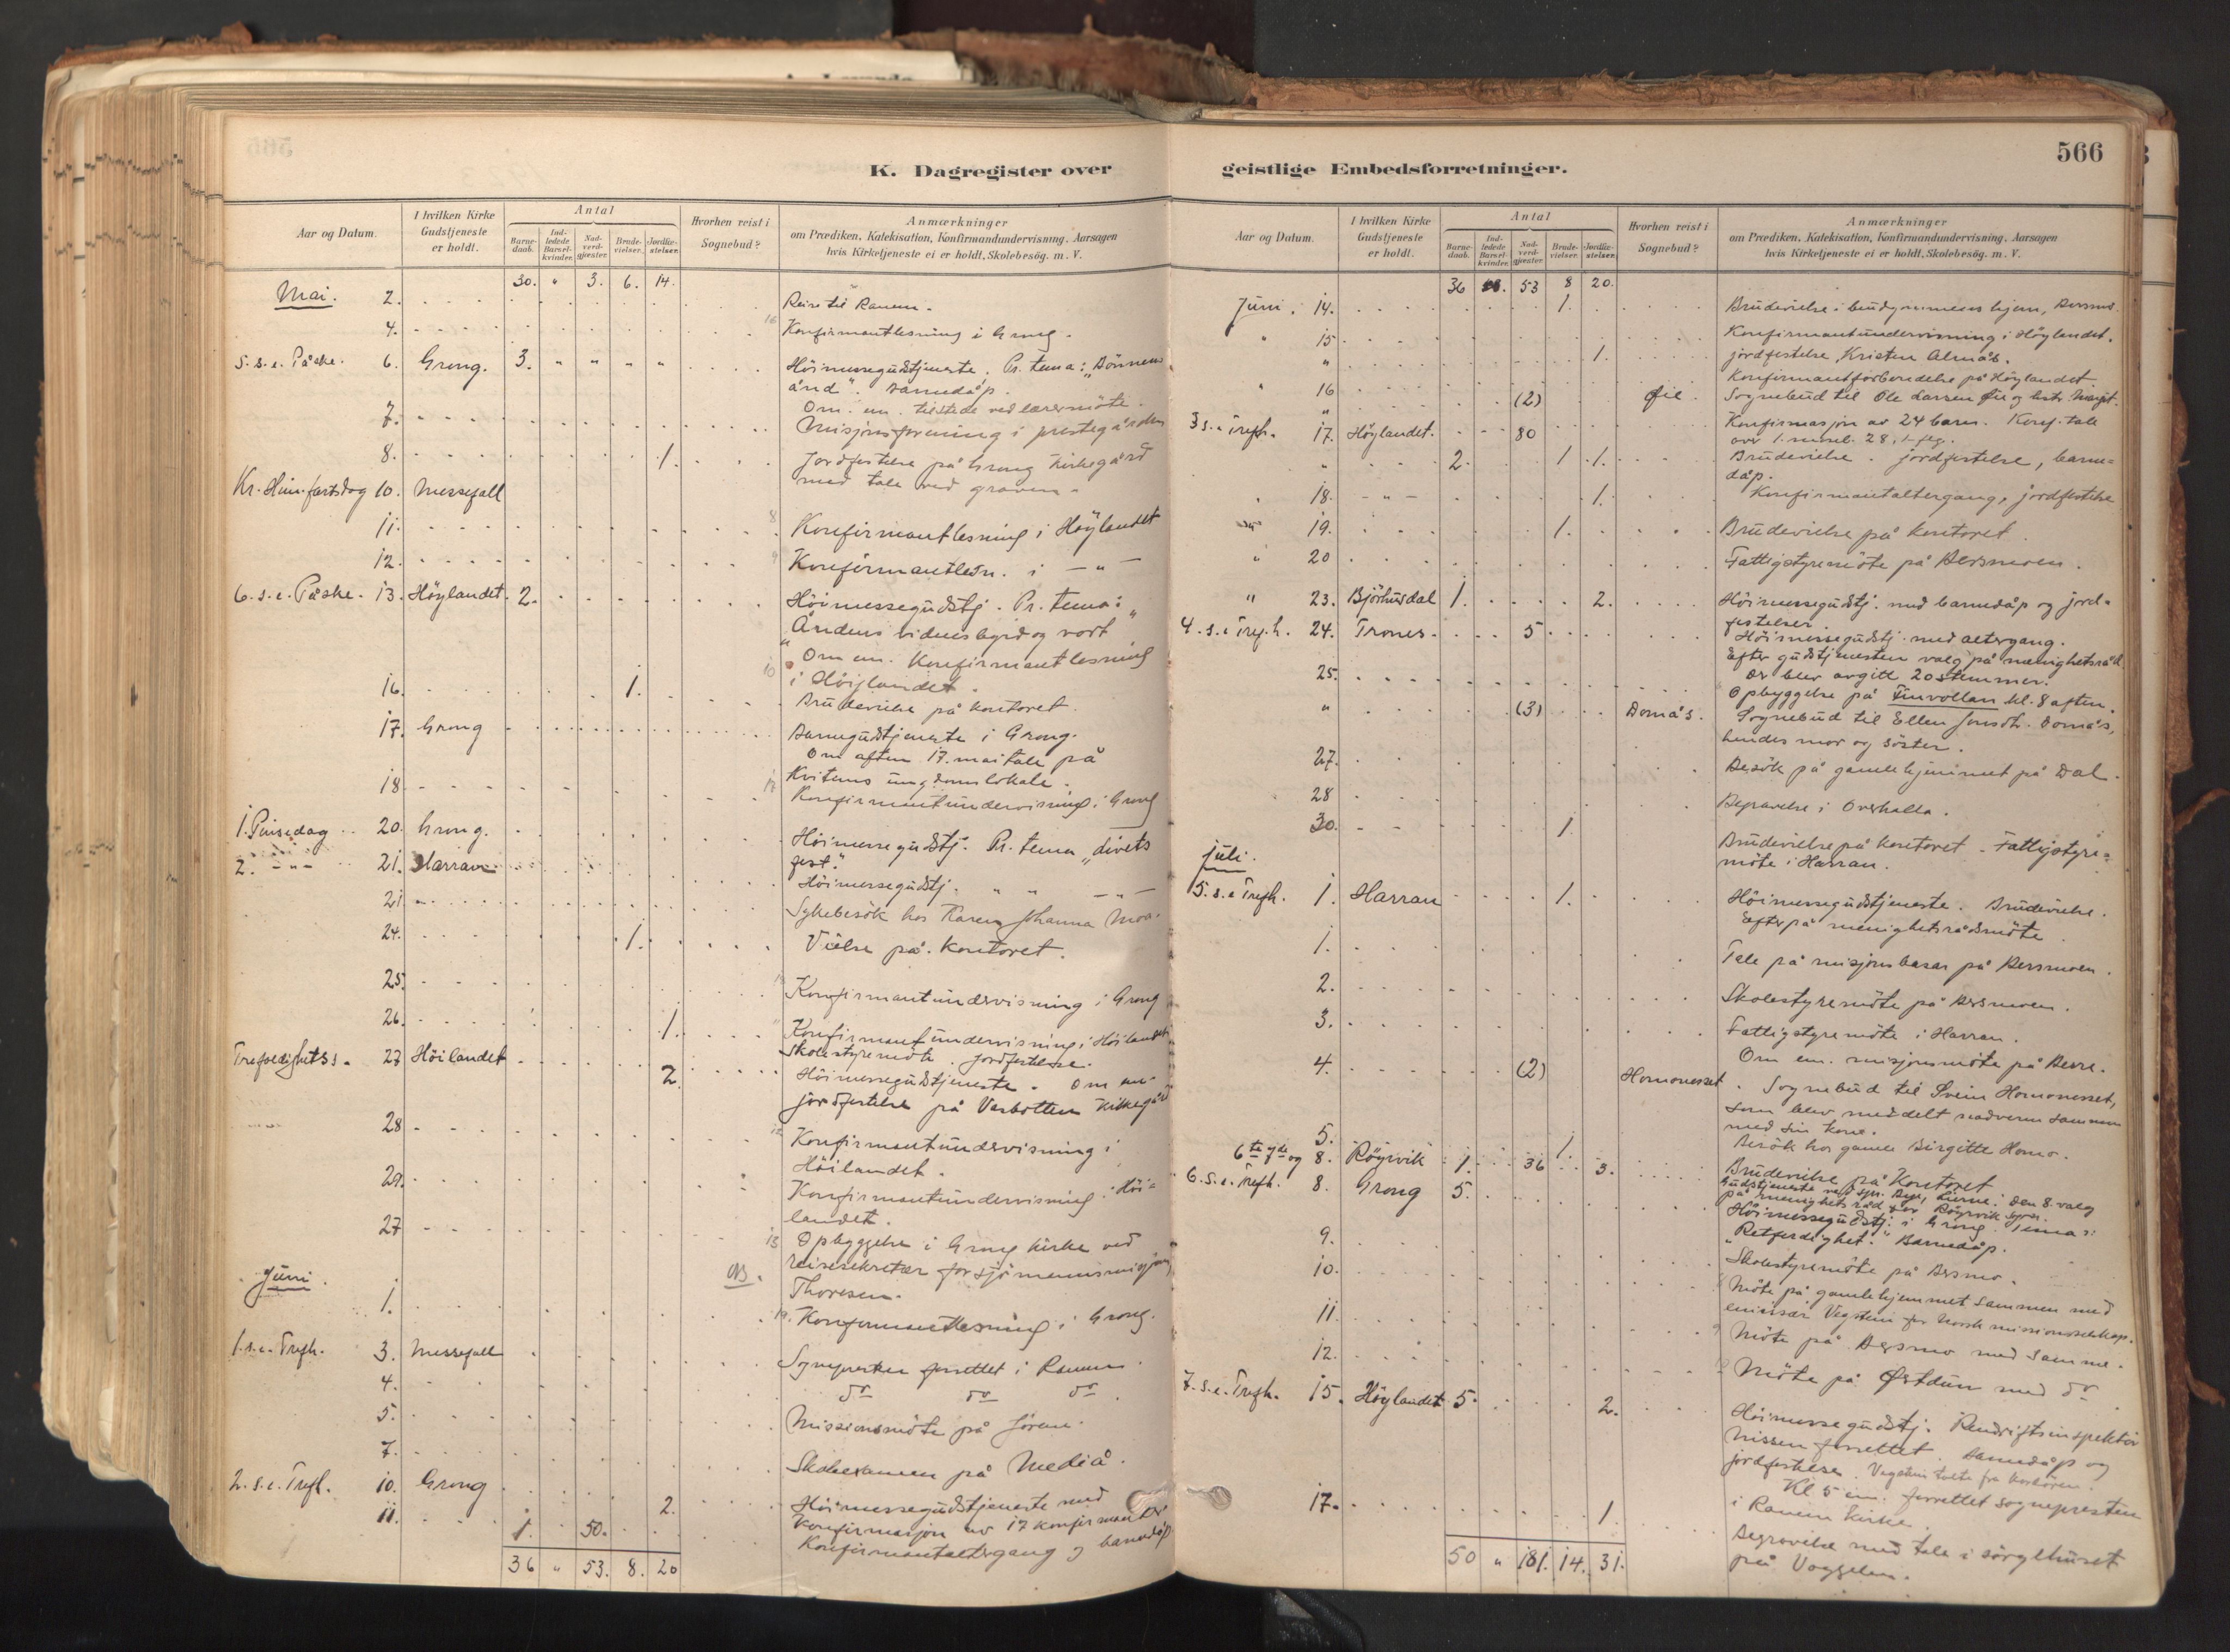 566
K. Dagregister over geistlige Embedsforretninger.
Aar og Datum.
I hvilken Kirke Gudstjeneste er holdt.
Antal
Barne-daab.
Ind-ledede Barsel-kvinder.
Nad-verd-gjæster.
Brude-vielser.
Jordfæ-stelser.
Hvorhen reist i Sognebud?
Anmærkninger
om Prædiken, Katekisation, Konfirmandundervisning, Aarsagen
hvis Kirketjeneste ei er holdt, Skolebesög. m. V.
30. " 3. 6. 14.
Mai. 2. Reise til Ranem.
4. 16 Konfirmantlesning i Grong.
5. s. e. Påske. 6. Grong. 3. " " " " Höimessegudstjeneste. Pr. tema: "Bönnens
ånd". Barnedåp.
7. Om em. tilstede ved lærermöte.
Misjonsforening i prestegården
8. 1. Jordfestelse på Grong Kirkegård
med tale ved graven.
Kr. Him.fartsdag 10. Messefall
11. 8 Konfirmantlesning i Höylandet
12. 9 Konfirmantlesn. i — " —
6. s. e. Påske. 13. Höylandet. 2. Höimessegudstj. Pr. tema:
"Åndens vidnesbyrd og vort"
Om em. Konfirmantlesning
10 i Höijlandet.
16. 1. Brudevielse på kontoret.
17. Grong Barnegudstjeneste i Grong.
Om aften 17. mai tale på
Kvitems ungdomslokale.
18 17 Konfirmantundervisning i Grong
1. Pinsedag 20. Grong. Höimessegudstj. Pr. tema "livets
fest".
2. — " — 21. Harran Höimessegudstj. " " — " —
21. Sykebesök hos Karen Johanna Moa.
24. 1. Vielse på kontoret.
25. Konfirmantundervisning i Grong
26. 1. 11 Konfirmantundervisning i Höilandet
Skolestyremöte. Jordfestelse.
Trefoldighetss. 27 Höilandet 2. Höimessegudstjeneste. Om em.
jordfestelse på Vasbotten Kirkegård
28 12 Konfirmantundervisning i
Höilandet.
29. Konfirmantundervisning i Höi=
landet.
27 13 Opbyggelse i Grong kirke ved
reisesekretær for sjömannsmisjon
NB. Thoresen.
Juni.
1. 19. Konfirmantlesning i Grong.
1. s. e. Trefh. 3. Messefall Sognepresten forrettet i Ranem.
4. do do do
5. Missionsmöte på Jörem.
7. Skoleeksamen på Mediå.
2. s. e. Trefh. 10. Grong 2. Höimessegudstjeneste med
konfirmasjon av 17 konfirmanter
11. 1. 50. Konfirmantaltergang og barnedåp
36 " 53. 8. 20
Aar og Datum.
I hvilken Kirke Gudstjeneste er holdt.
Antal
Barne-daab.
Ind-ledede Barsel-kvinder.
Nad-verd-gjæster.
Brude-vielser.
Jordfæ-stelser.
Hvorhen reist i Sognebud?
Anmærkninger
om Prædiken, Katekisation, Konfirmandundervisning, Aarsagen
hvis Kirketjeneste ei er holdt, Skolebesög. m. V.
36 53 8 20.
Juni. 14. 1. Brudevielse i brudgommens hjem, Bersmo.
" 15 Konfirmantundervisning i Höylandet.
" 1. jordfestelse, Kristen Almås.
Konfirmantforberedelse på Höylandet
" 16 (2) Öie. Sognebud til Ole Larsen Öie og hustr. Margit.
3 s. e. Trefh. 17. Höylandet. 80 Konfirmasjon av 24 barn. Konf. tale
over 1. 28, 1. flg.
" 2. 1. 1. Brudevielse. jordfestelse, barne=
dåp.
" 18. 1. Konfirmantaltergang, jordfestelse
" 19. 1. Brudevielse på kontoret.
" 20 Fattigstyremöte på Bersmoen.
" 23. Björhusdal 1. 2. Höimessegudstj. med barnedåp og jord=
festelser.
4. s. e. Tref.h. 24. Trones. 5 Höimessegudstj. med altergang.
Efter gudstjenesten valg på menighetsråd.
Der blev avgitt 20 stemmer.
25. Opbyggelse på Finvollan kl. 8 aften.
" (3) Domås. Sognebud til Ellen Jonsdtr. Domås,
hendes mor og söster.
27. Besök på gamlehjemmet på Dal.
28 Begravelse i Overhalla.
30. 1. Brudevielse på kontoret. Fattigstyre=
möte i Harran.
juli.
5. s. e. Trefh. 1. Harran 1. Höimessegudstjeneste. Brudevielse.
Efterpå menighetsrådsmöte.
1. Tale på misjonsbasar på Bersmoen.
2. Skolestyremöte på Bersmoen.
3. Fattigstyremöte i Harran.
4. Om em. misjonsmöte på Berre.
(2) Homonesset. Sognebud til Svein Homonesset,
som blev meddelt nadveren sammen
med sin kone.
Besök hos gamle Birgitte Homo.
5. 1. Brudevielse på Kontoret
6te 7de og 8. Röyrvik 1. 36 3. Gudstjeneste ved spr. Bye, Lierne. Den 8. valg
på menighetsråd for Röyrvik sogn.
6. s. e. Trefh. 8. Grong 5. Höimessegudstj. i Grong. Tema:
"Retferdighet." Barnedåp.
9. Skolestyremöte på Bersmo.
10. 8 Möte på gamlehjemmet sammen med
emissær Vegstein for Norsk missionsselskap.
11. 9 Möte på Bersmo med samme.
12. Möte på Östdun med do
7. s. e. Trefh. 15. Höylandet 5. 2. Höimessegudstj. Rendriftsinspektör
Nissen forrettet. Barnedåp og
jordfestelse. Vegstein talte fra kordören.
Kl 5 em. forrettet sognepresten
i Ranem kirke.
17. 1. Begravelse med tale i sörgehuset
på Voggelen.
50 " 181. 14. 31.